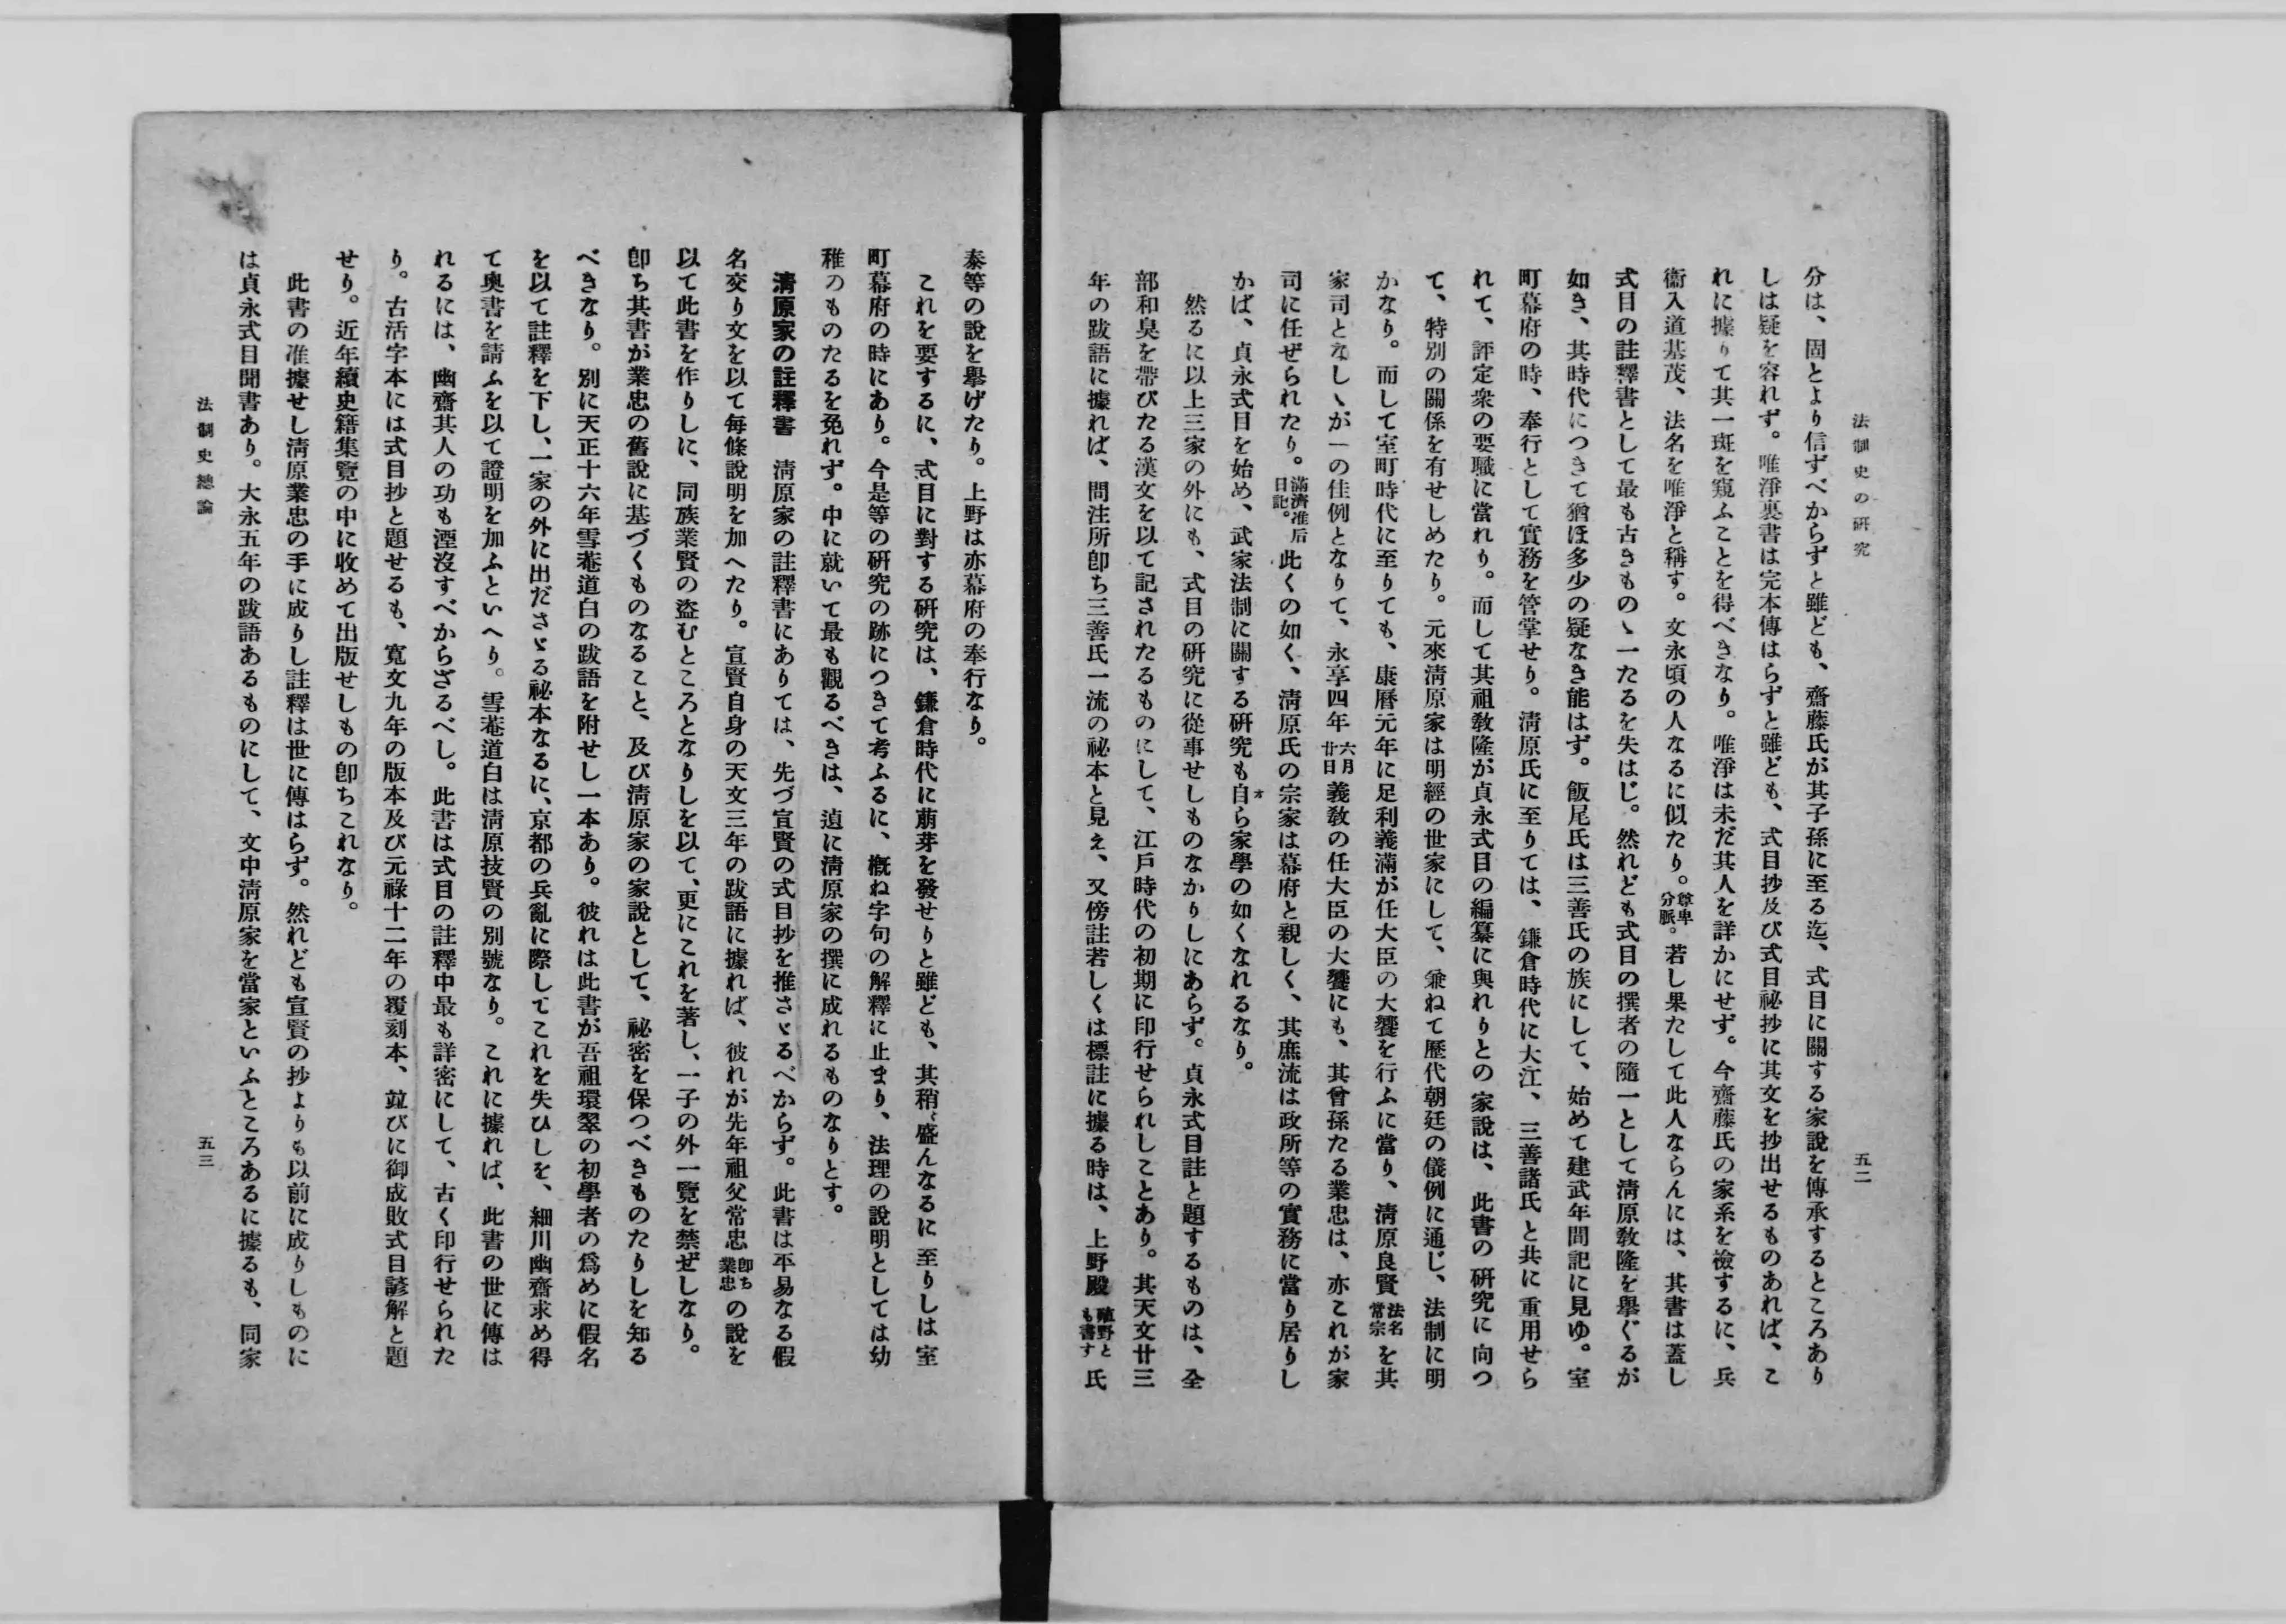 法制史の研究
五二
分は、固とより信ずべからずと雖ども、齋藤氏が其子孫に至る迄、式目に關する家説を傳承するところあり
しは疑を容れず。唯淨裏書は完本傳はらずと雖ども、式目抄及び式目秘抄に其文を抄出せるものあれば、こ
れに據りて其一斑を窺ふことを得べきなり。唯淨は未だ其人を詳かにせず。今齋藤氏の家系を檢するに、兵
衞入道基茂、法名を唯淨と稱す。文永頃の人なるに似たり。尊卑分脈。若し果たして此人ならんには、其書は蓋し
式目の註釋書として最も古きものゝ一たるを失はじ。然れども式目の撰者の隨一として淸原敎隆を擧ぐるが
如き、其時代につきて猶ほ多少の疑なき能はず。飯尾氏は三善氏の族にして、始めて建武年間記に見ゆ。室
町幕府の時、奉行として實務を管掌せり。淸原氏に至りては、鎌倉時代に大江、三善諸氏と共に重用せら
れて、評定衆の要職に當れり。而して其祖敎隆が貞永式目の編纂に與れりとの家説は、此書の硏究に向つ
て、特別の關係を有せしめたり。元來淸原家は明經の世家にして、兼ねて歷代朝廷の儀例に通じ、法制に明
かなり。而して室町時代に至りても、康曆元年に足利義滿が任大臣の大饗を行ふに當り、淸原良賢法名常宗を其
家司となしゝが一の佳例となりて、永享四年六月廿日義敎の任大臣の大饗にも、其曾孫たる業忠は、亦これが家
司に任ぜられたり。滿濟准后日記。此くの如く、淸原氏の宗家は幕府と親しく、其庶流は政所等の實務に當り居りし
かば、貞永式目を始め、武家法制に關する硏究も自オら家學の如くなれるなり。
然るに以上三家の外にも、式目の硏究に從事せしものなかりしにあらず。貞永式目註と題するものは、全
部和臭を帶びたる漢文を以て記されたるものにして、江戶時代の初期に印行せられしことあり。其天文廿三
年の跋語に據れば、問注所卽ち三善氏一流の祕本と見え、又傍註若しくは標註に據る時は、上野殿殖野とも書す氏
泰等の說を擧げたり。上野は亦幕府の奉行なり。
これを要するに、式目に對する硏究は、鎌倉時代に萠芽を發せりと雖ども、其稍〻盛んなるに至りしは室
町幕府の時にあり。今是等の硏究の跡につきて考ふるに、槪ね字句の解釋に止まり、法理の說明としては幼
稚のものたるを免れず。中に就いて最も觀るべきは、遉に淸原家の撰に成れるものなりとす。
淸原家の註釋書　淸原家の註釋書にありては、先づ宣賢の式目抄を推さゞるべからず。此書は平易なる假
名交り文を以て每條說明を加へたり。宣賢自身の天文三年の跋語に據れば、彼れが先年祖父常忠卽ち業忠の說を
以て此書を作りしに、同族業賢の盜むところとなりしを以て、更にこれを著し、一子の外一覽を禁ぜしなり。
卽ち其書が業忠の舊說に基づくものなること、及び淸原家の家說として、祕密を保つべきものたりしを知る
べきなり。別に天正十六年雪菴道白の跋語を附せし一本あり。彼れは此書が吾祖環翠の初學者の爲めに假名
を以て註釋を下し、一家の外に出ださゞる祕本なるに、京都の兵亂に際してこれを失ひしを、細川幽齋求め得
て奧書を請ふを以て證明を加ふといへり。雪菴道白は淸原技賢の別號なり。これに據れば、此書の世に傳は
れるには、幽齋其人の功も湮沒すべからざるべし。此書は式目の註釋中最も詳密にして、古く印行せられた
り。古活字本には式目抄と題せるも、寬文九年の版本及び元祿十二年の覆刻本、竝びに御成敗式目諺解と題
せり。近年續史籍集覽の中に收めて出版せしもの卽ちこれなり。
此書の准據せし淸原業忠の手に成りし註釋は世に傳はらず。然れども宣賢の抄よりも以前に成りしものに
は貞永式目聞書あり。大永五年の跋語あるものにして、文中淸原家を當家といふところあるに據るも、同家
法制史總論
五三